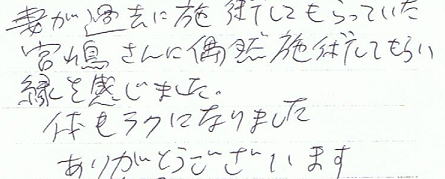 妻が過去に施術してもらっていた
宮嶋さんに偶然施術してもらい
縁を感じました。
体もラクになりました
ありがとうございます